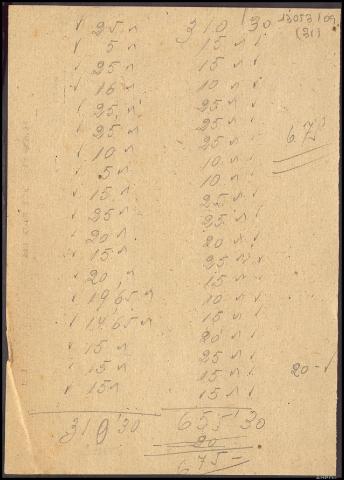 310'30 13053/09
(31)
√ 25 "
√ 5 "
√ 25 "
√ 16 "
√ 25 "
√ 25 "
√ 10 "
√ 5 "
√ 15 "
√ 25 "
√ 20 "
√ 15 "
√ 20 "
√ 19,65 "
√ 14,65 "
√ 15 "
√ 15 "
√ 15 "
310'30
15 " √
15 " √
10 " √
25 " √
25 " √
25 " √
10 " √
10 " √
25 " √
25 " √
20 " √
25 " √
15 " √
10 " √
15 " √
20 " √
25 " √
15 " √
15 " √
655'30
20
675 -
20 - √